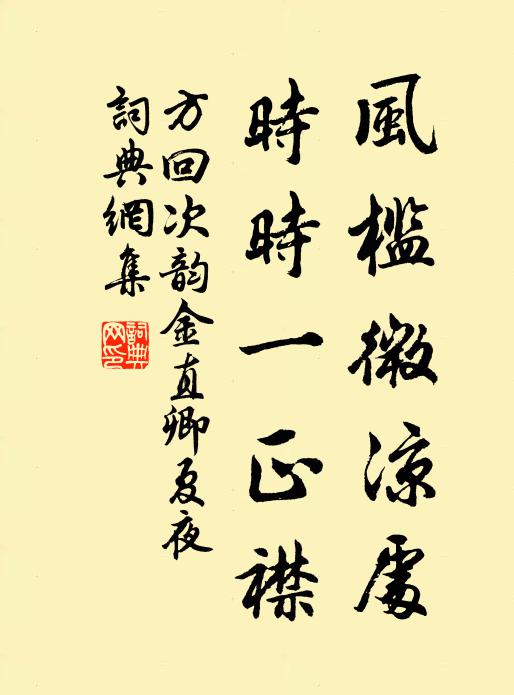 風檻微涼處
時時一正襟
方回次韵金直卿夏夜
詞典網集
詞典网印